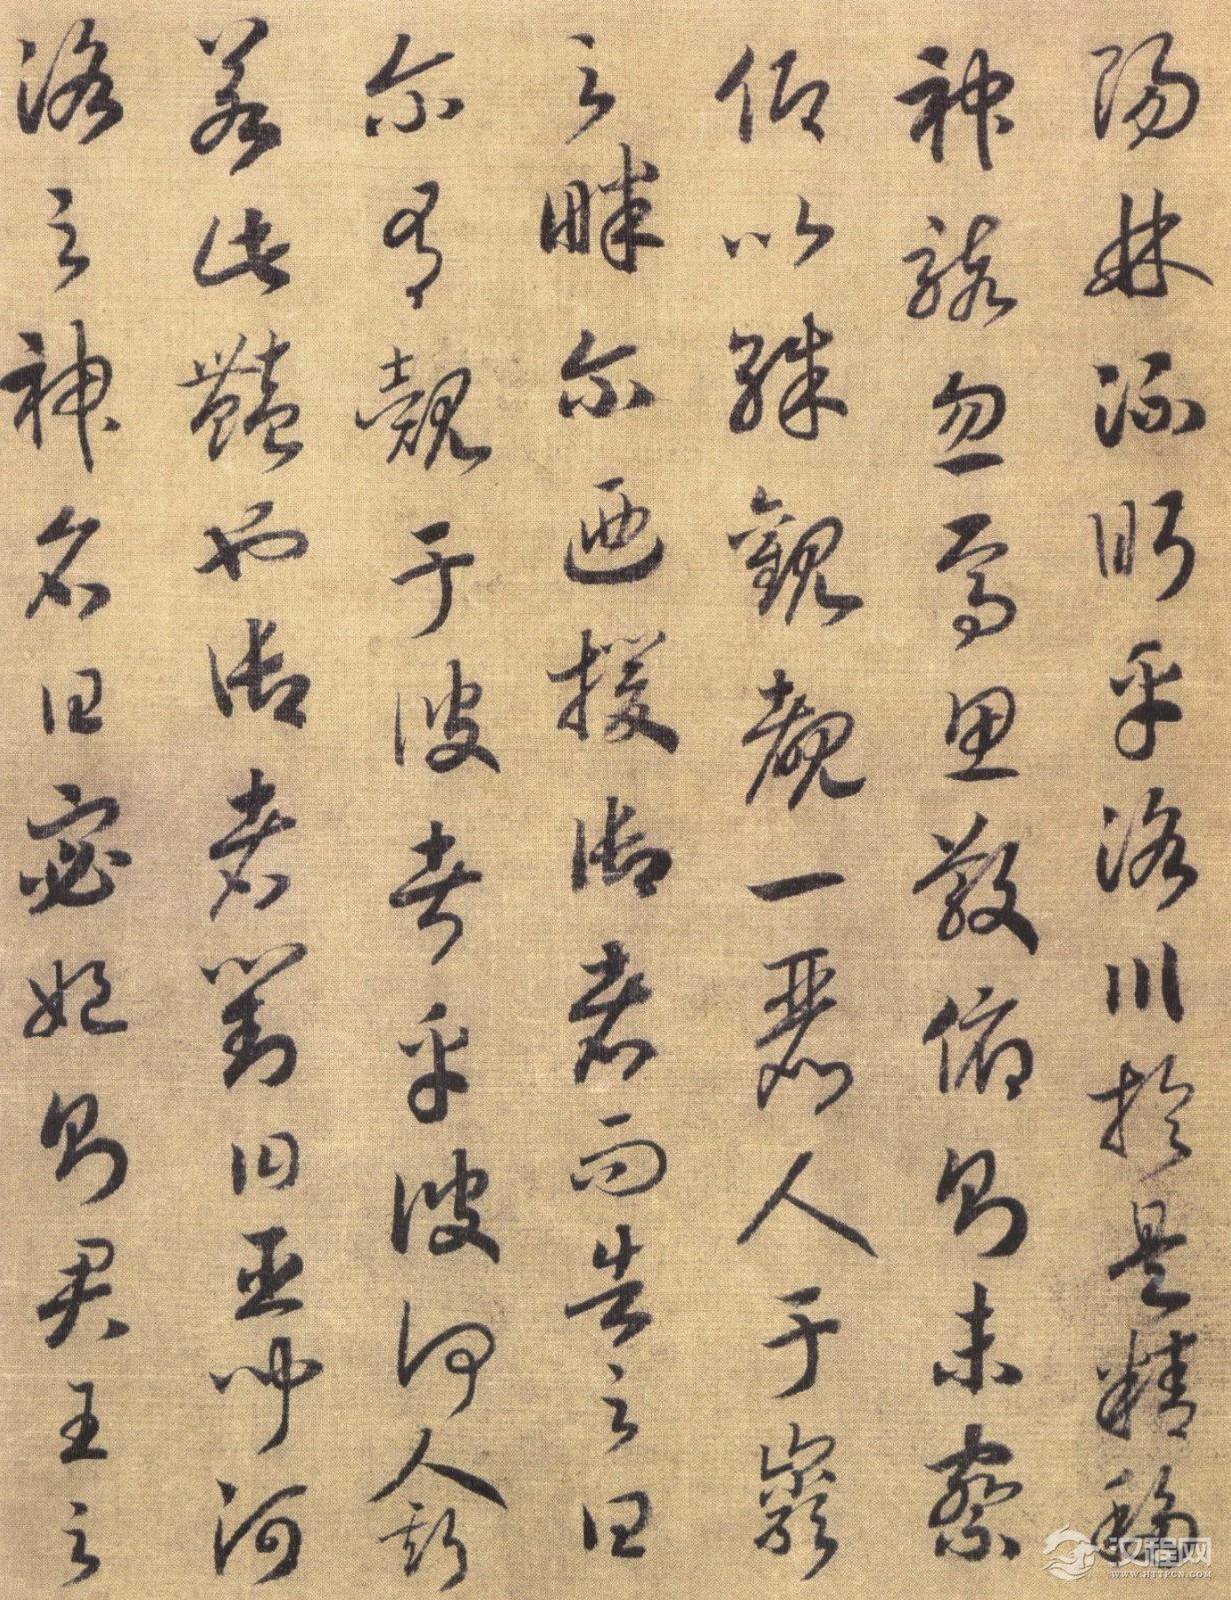 陽林流眄乎洛川於是精移
神駭忽焉思散俯則未察
仰以殊觀覩一麗人于巖
之畔尔迺援御者而告之曰
尔有覿于彼者乎彼何人斯
若此豔也御者對曰臣聞河
洛之神名曰宓妃則君王之
汉程网
WWW.HTTPCN.COM